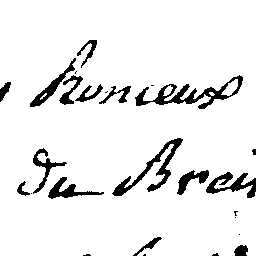 Ronceux
du Breui